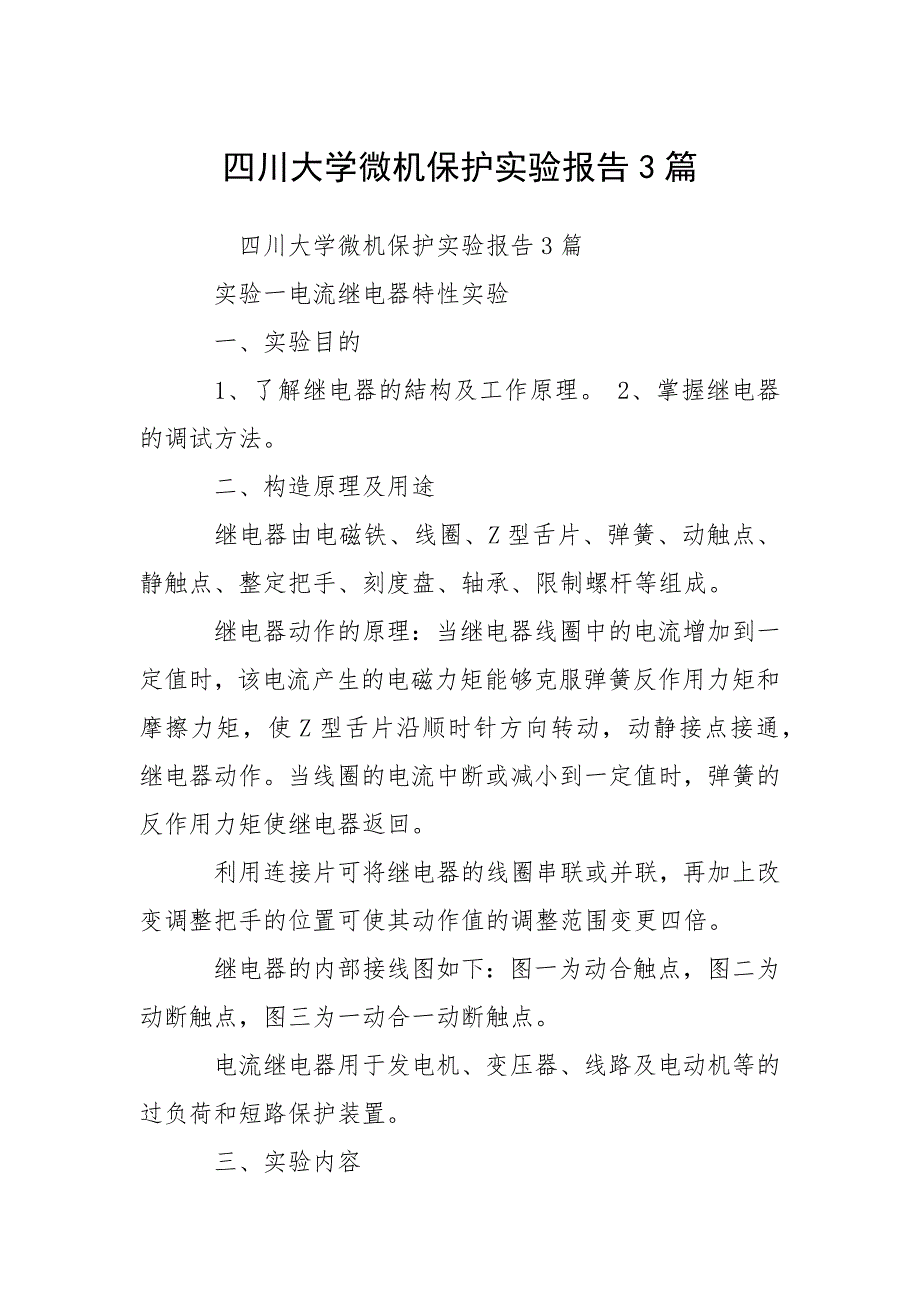 四川大学微机保护实验报告3篇
四川大学微机保护实验报告3篇
实验一电流继电器特性实验
一、实验目的
1、了解继电器的結构及工作原理。 2、掌握继电器
的调试方法。
二、构造原理及用途
继电器由电磁铁、线圈、Z型舌片、弹簧、动触点、
静触点、整定把手、刻度盘、轴承、限制螺杆等组成。
继电器动作的原理：当继电器线圈中的电流增加到一
定值时，该电流产生的电磁力矩能够克服弹簧反作用力矩和
摩擦力矩，使Z型舌片沿顺时针方向转动，动静接点接通，
继电器动作。当线圈的电流中断或减小到一定值时，弹簧的
反作用力矩使继电器返回。
利用连接片可将继电器的线圈串联或并联，再加上改
变调整把手的位置可使其动作值的调整范围变更四倍。
继电器的内部接线图如下：图一为动合触点，图二为
动断触点，图三为一动合一动断触点。
电流继电器用于发电机、变压器、线路及电动机等的
过负荷和短路保护装置。
三、实验内容